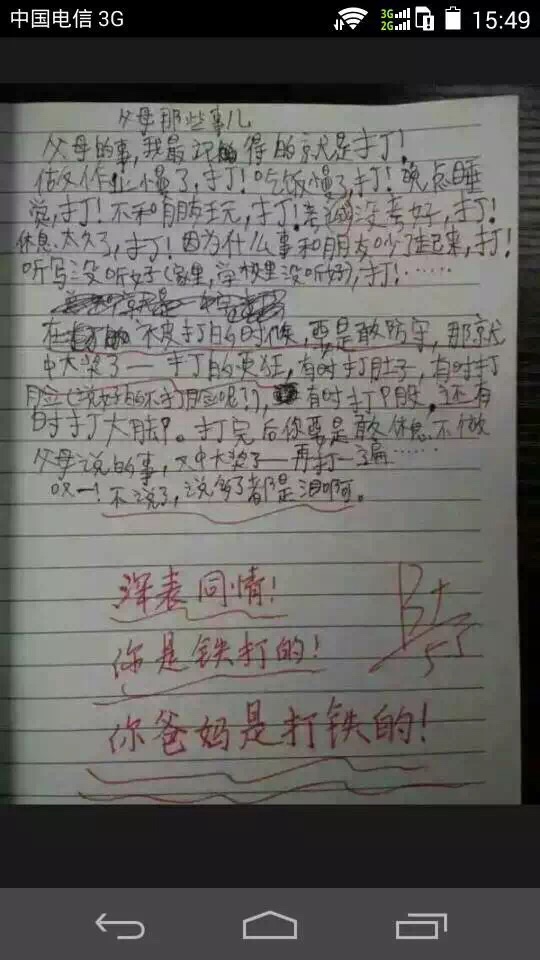 中国电信 3G
3G
2G
15:49
父母那些事儿
父母的事,我最记得的就是打!
做作业慢了,打!吃饭慢了,打!晚点睡
觉,打!不和朋友玩,打!考试没考好,打!
休息太久了,打!因为什么事和朋友吵了起来,打!
听写没听好(家里,学校里没听好),打!……
在 被打的时候,要是敢防守,那就
中大奖了——打的更狂,有时打肚子,有时打
脸(说好的不打脸呢?),有时打屁股,还有
时打大腿。打完后你要是敢休息不做
父母说的事,又中大奖了——再打一遍……
哎—!不说了,说多了都是泪啊。
深表同情!
你是铁打的!
你爸妈是打铁的!
B+